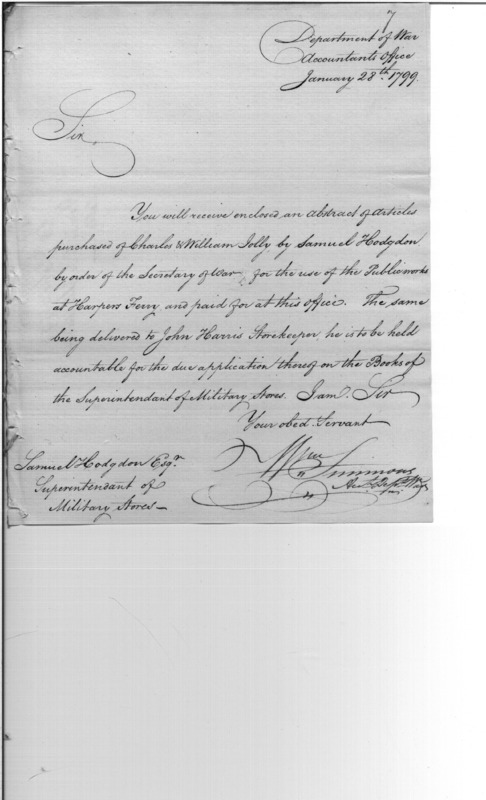 7
Department of War
Accountants Office
January 28th. 1799
Sir,
You will receive enclosed, an abstract of articles
purchased of Charles & William Jolly by Samuel Hodgdon
by order of the Secretary of War, for the use of the Public works
at Harpers Ferry and paid for at this office. The same
being delivered to John Harris Storekeeper, he is to be held
accountable for the due application thereof on the Books of
the Superintendant of Military Stores. I am. Sir
Your obed. Servant
Wm Simmons
Samuel Hodgdon Esqr.
Superintendant of
Military Stores